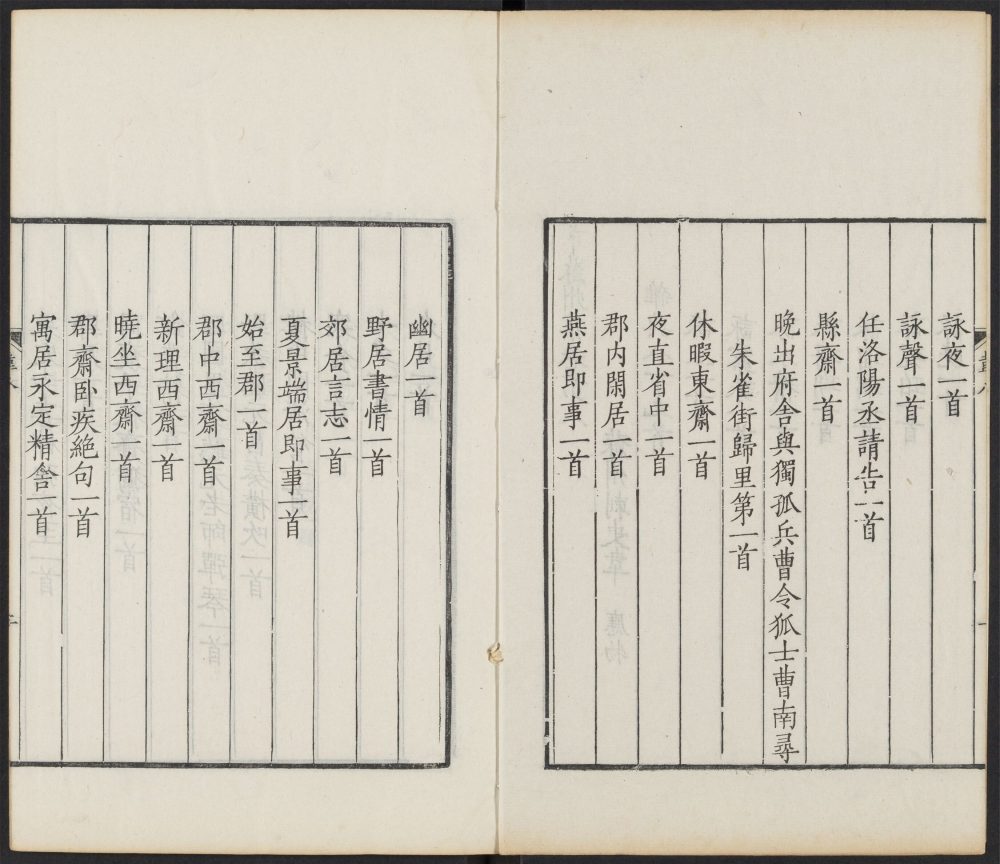 詠夜一首
詠聲一首
任洛陽丞請告一首
縣齋一首
晚出府舍與獨孤兵曹令狐士曹南尋
朱雀街歸里第一首
休暇東齋一首
夜直省中一首
郡內閑居一首
燕居即事一首
幽居一首
野居書情一首
郊居言志一首
夏景端居即事一首
始至郡一首
郡中西齋一首
新理西齋一首
曉坐西齋一首
郡齋卧疾絶句一首
寓居永定精舍一首